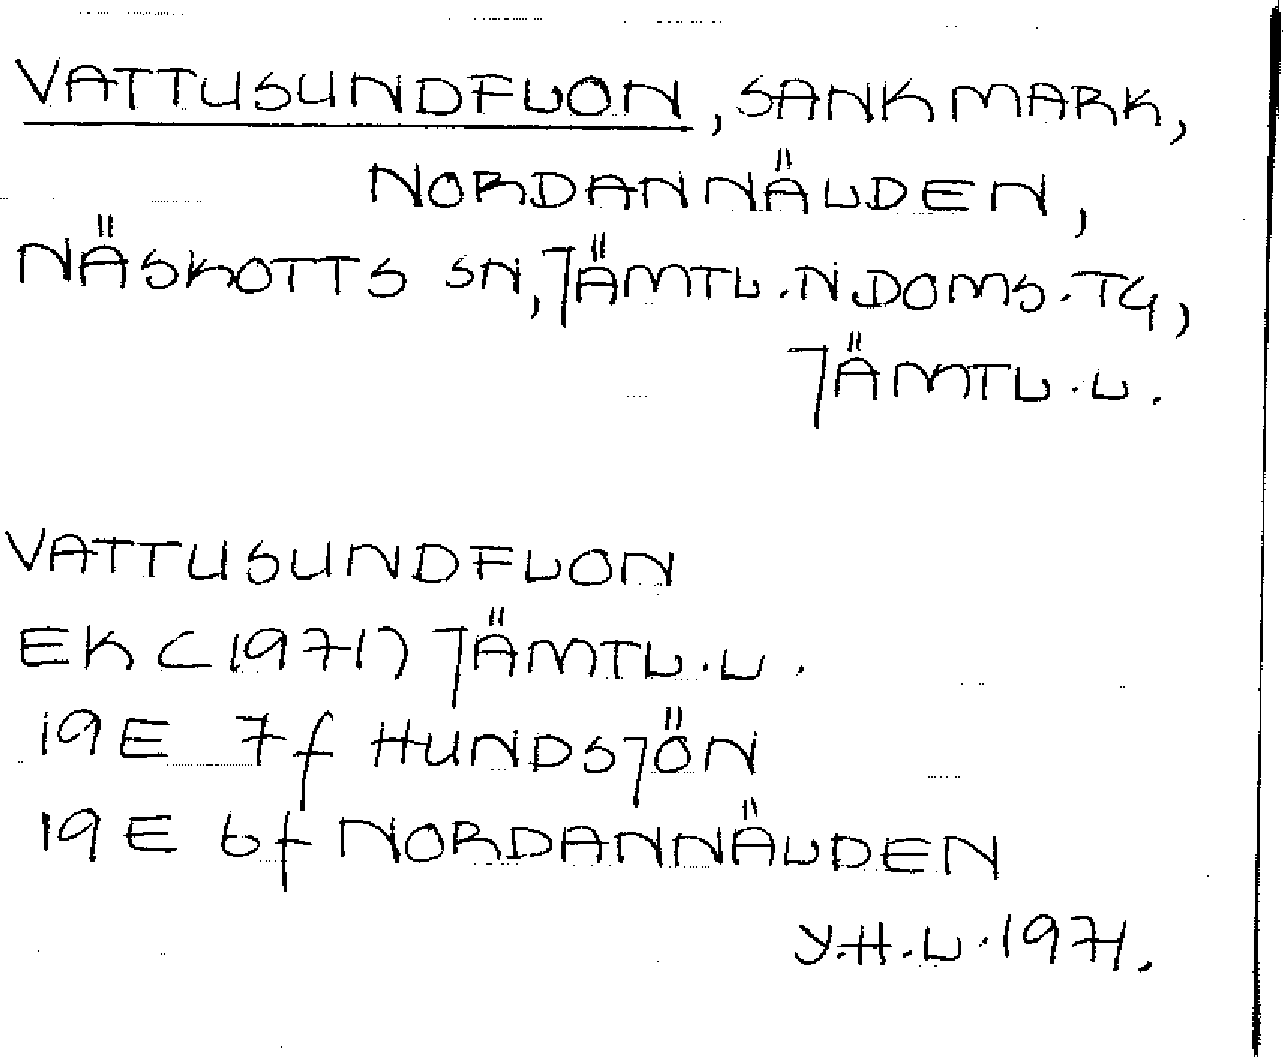 VATTUSUNDFLON, SANKMARK,
NORDANNÄLDEN,
NÄSKOTTS SN, JÄMTL. N. DOMS. TG,
JÄMTL. L.
VATTUSUNDFLON
EK (1971) JÄMTL. L.
19E 7f HUNDSJÖN
19E 6f NORDANNÄLDEN
Y.H.L. 1971.